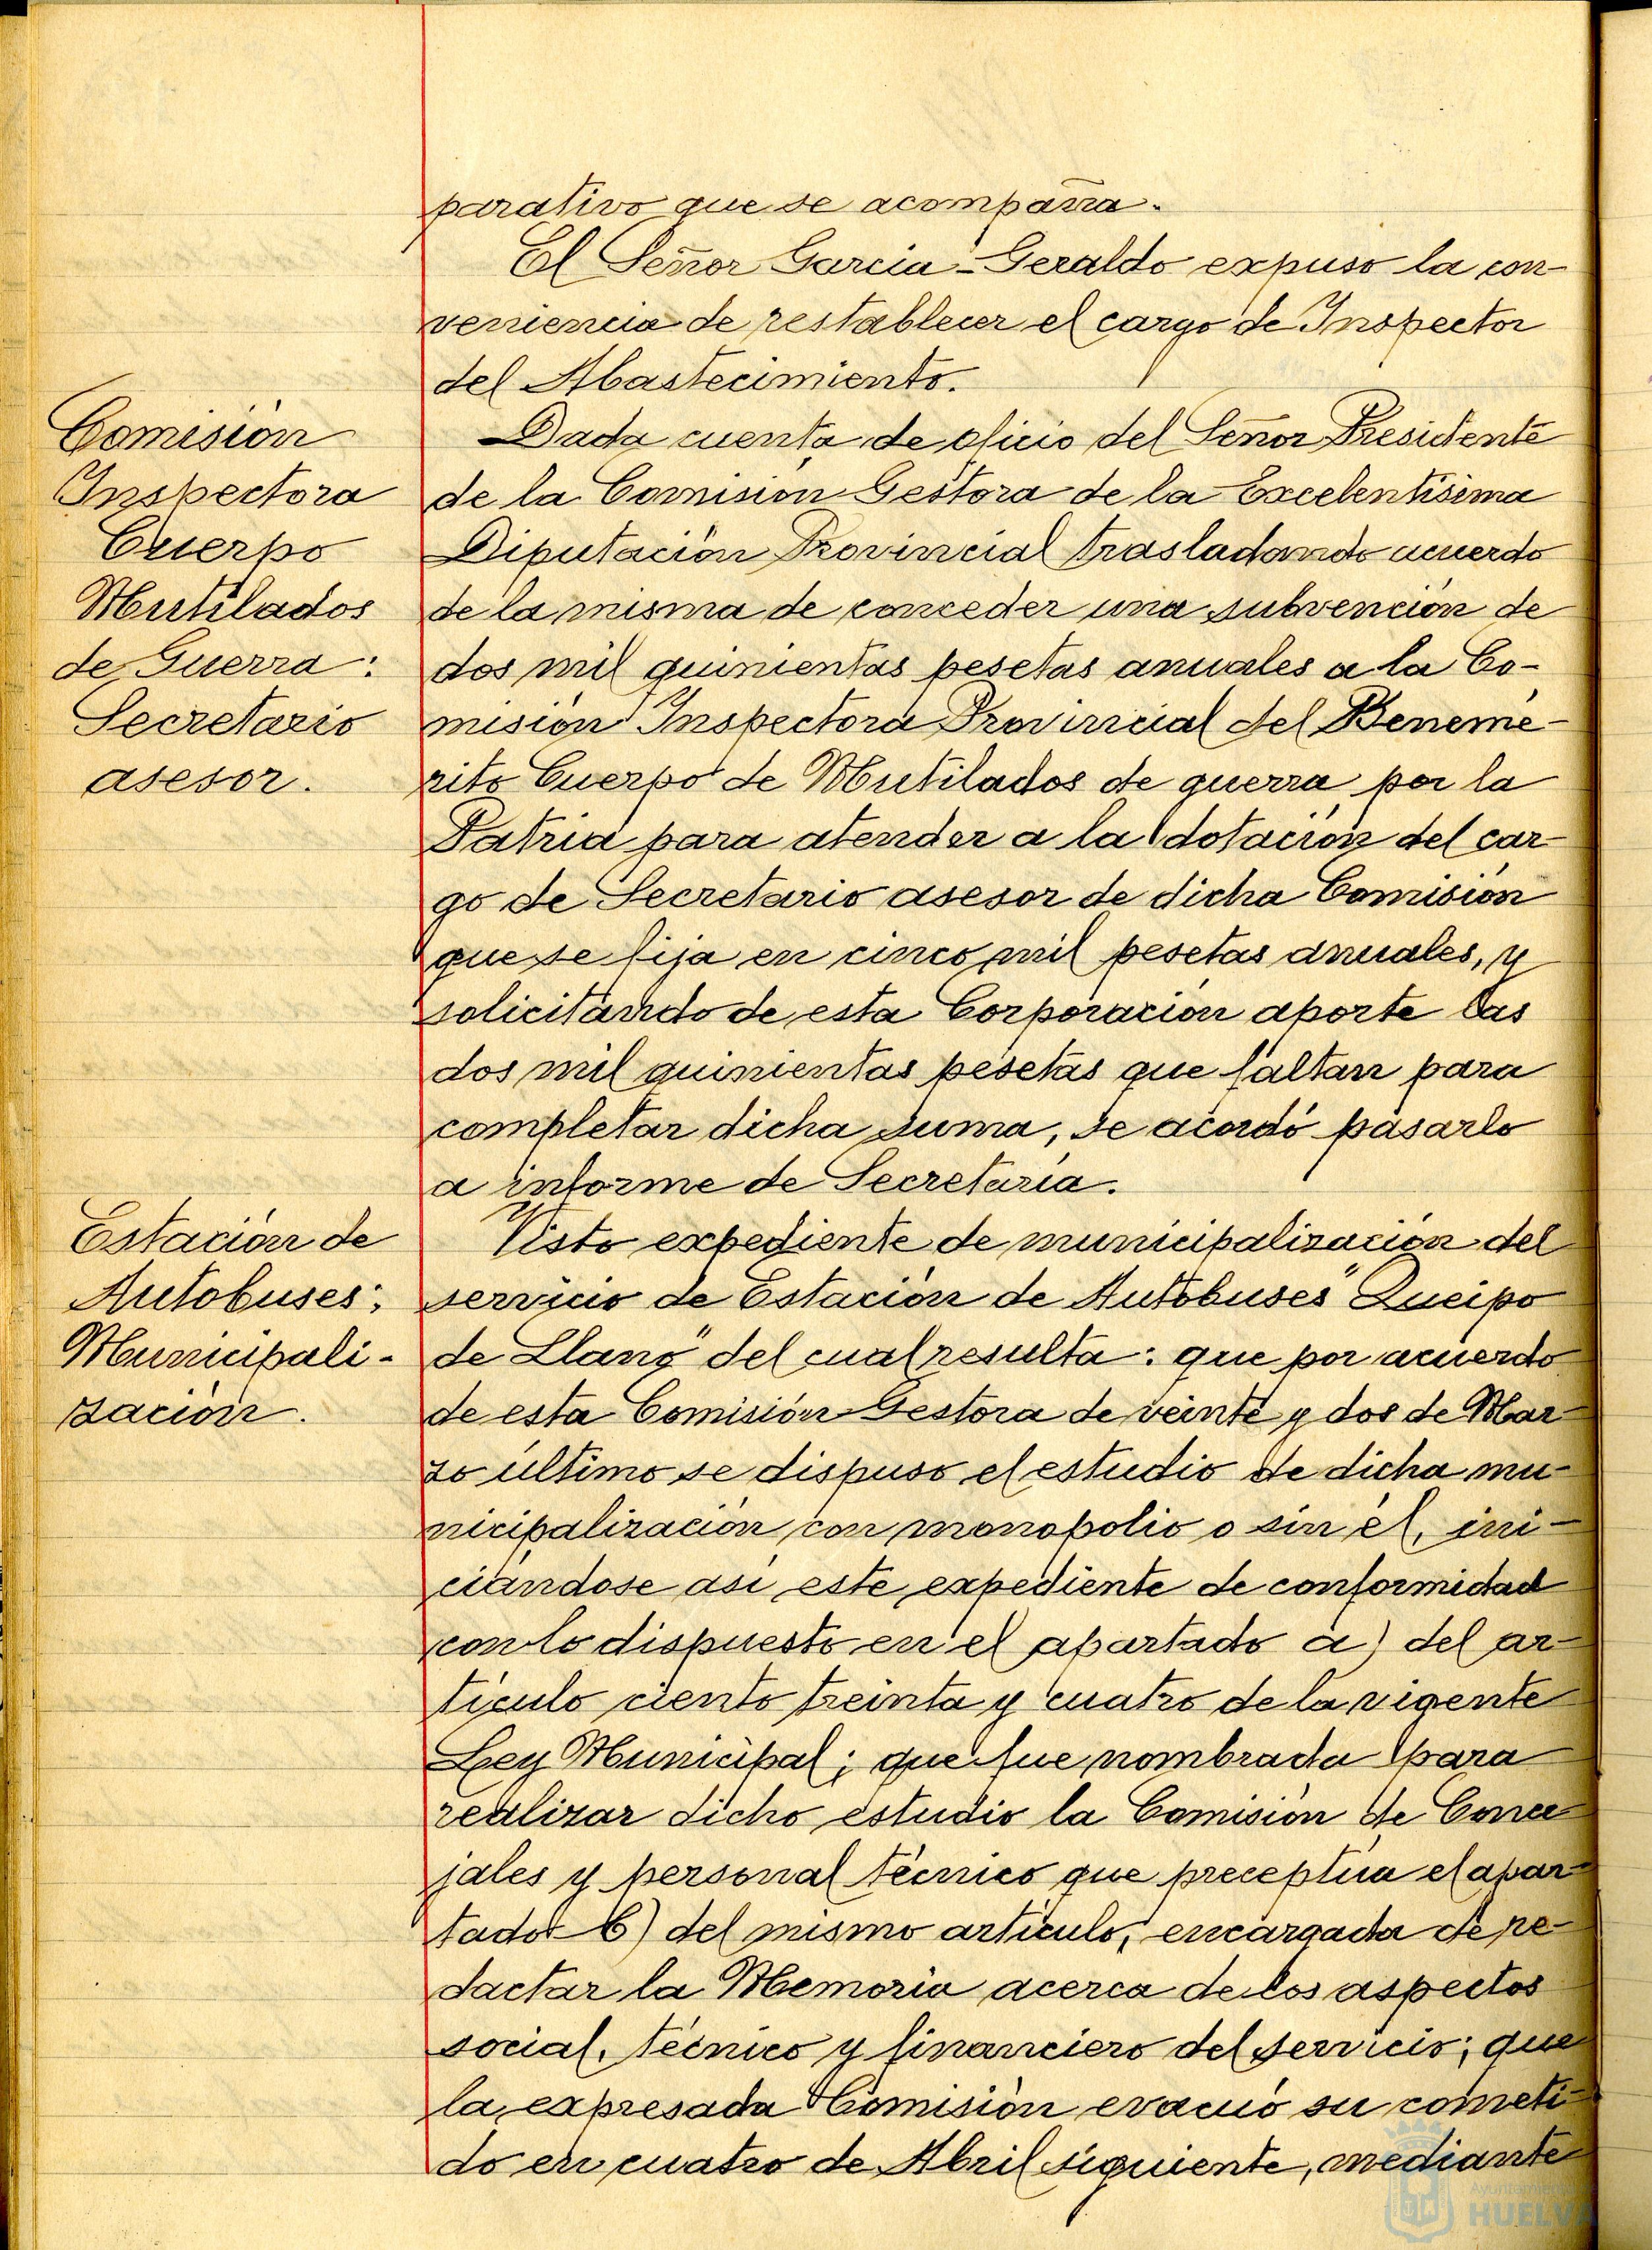 parativo que se acompaña.
El Señor García-Geraldo expuso la con-
veniencia de restablecer el cargo de Inspector
del Abastecimiento.
Comisión
Inspectora
Cuerpo
Mutilados
de Guerra:
Secretario
asesor.
Dada cuenta de oficio del Señor Presidente
de la Comisión Gestora de la Excelentísima
Diputación Provincial trasladando acuerdo
de la misma de conceder una subvención de
dos mil quinientas pesetas anuales a la Co-
misión Inspectora Provincial del Benemé-
rito Cuerpo de Mutilados de guerra por la
Patria para atender a la dotación del car-
go de Secretario asesor de dicha Comisión
que se fija en cinco mil pesetas anuales, y
solicitando de esta Corporación aporte las
dos mil quinientas pesetas que faltan para
completar dicha suma, se acordó pasarlo
a informe de Secretaría.
Estación de
Autobuses:
Municipali-
zación.
Visto expediente de municipalización del
servicio de Estación de Autobuses "Queipo
de Llano" del cual resulta: que por acuerdo
de esta Comisión Gestora de veinte y dos de Mar-
zo último se dispuso el estudio de dicha mu-
nicipalización con monopolio o sin él, ini-
ciándose así este expediente de conformidad
con lo dispuesto en el apartado a) del ar-
tículo ciento treinta y cuatro de la vigente
Ley Municipal; que fue nombrada para
realizar dicho estudio la Comisión de Conce-
jales y personal técnico que preceptúa el apar-
tado b) del mismo artículo, encargada de re-
dactar la Memoria acerca de los aspectos
social, técnico y financiero del servicio; que
la expresada Comisión evacuó su cometi-
do en cuatro de Abril siguiente, mediante
Ayuntamiento de
HUELVA